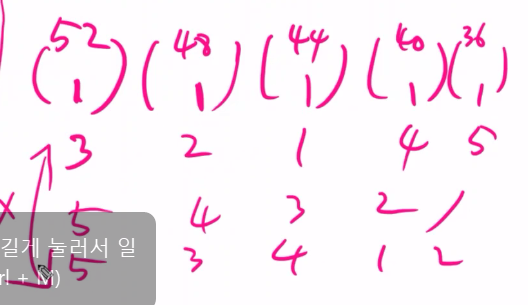 (52 1) (48 1) (44 1) (40 1) (36 1)
3 2 1 4 5
5 4 3 2 1
5 3 4 1 2
길게 눌러서 일
rl + M)